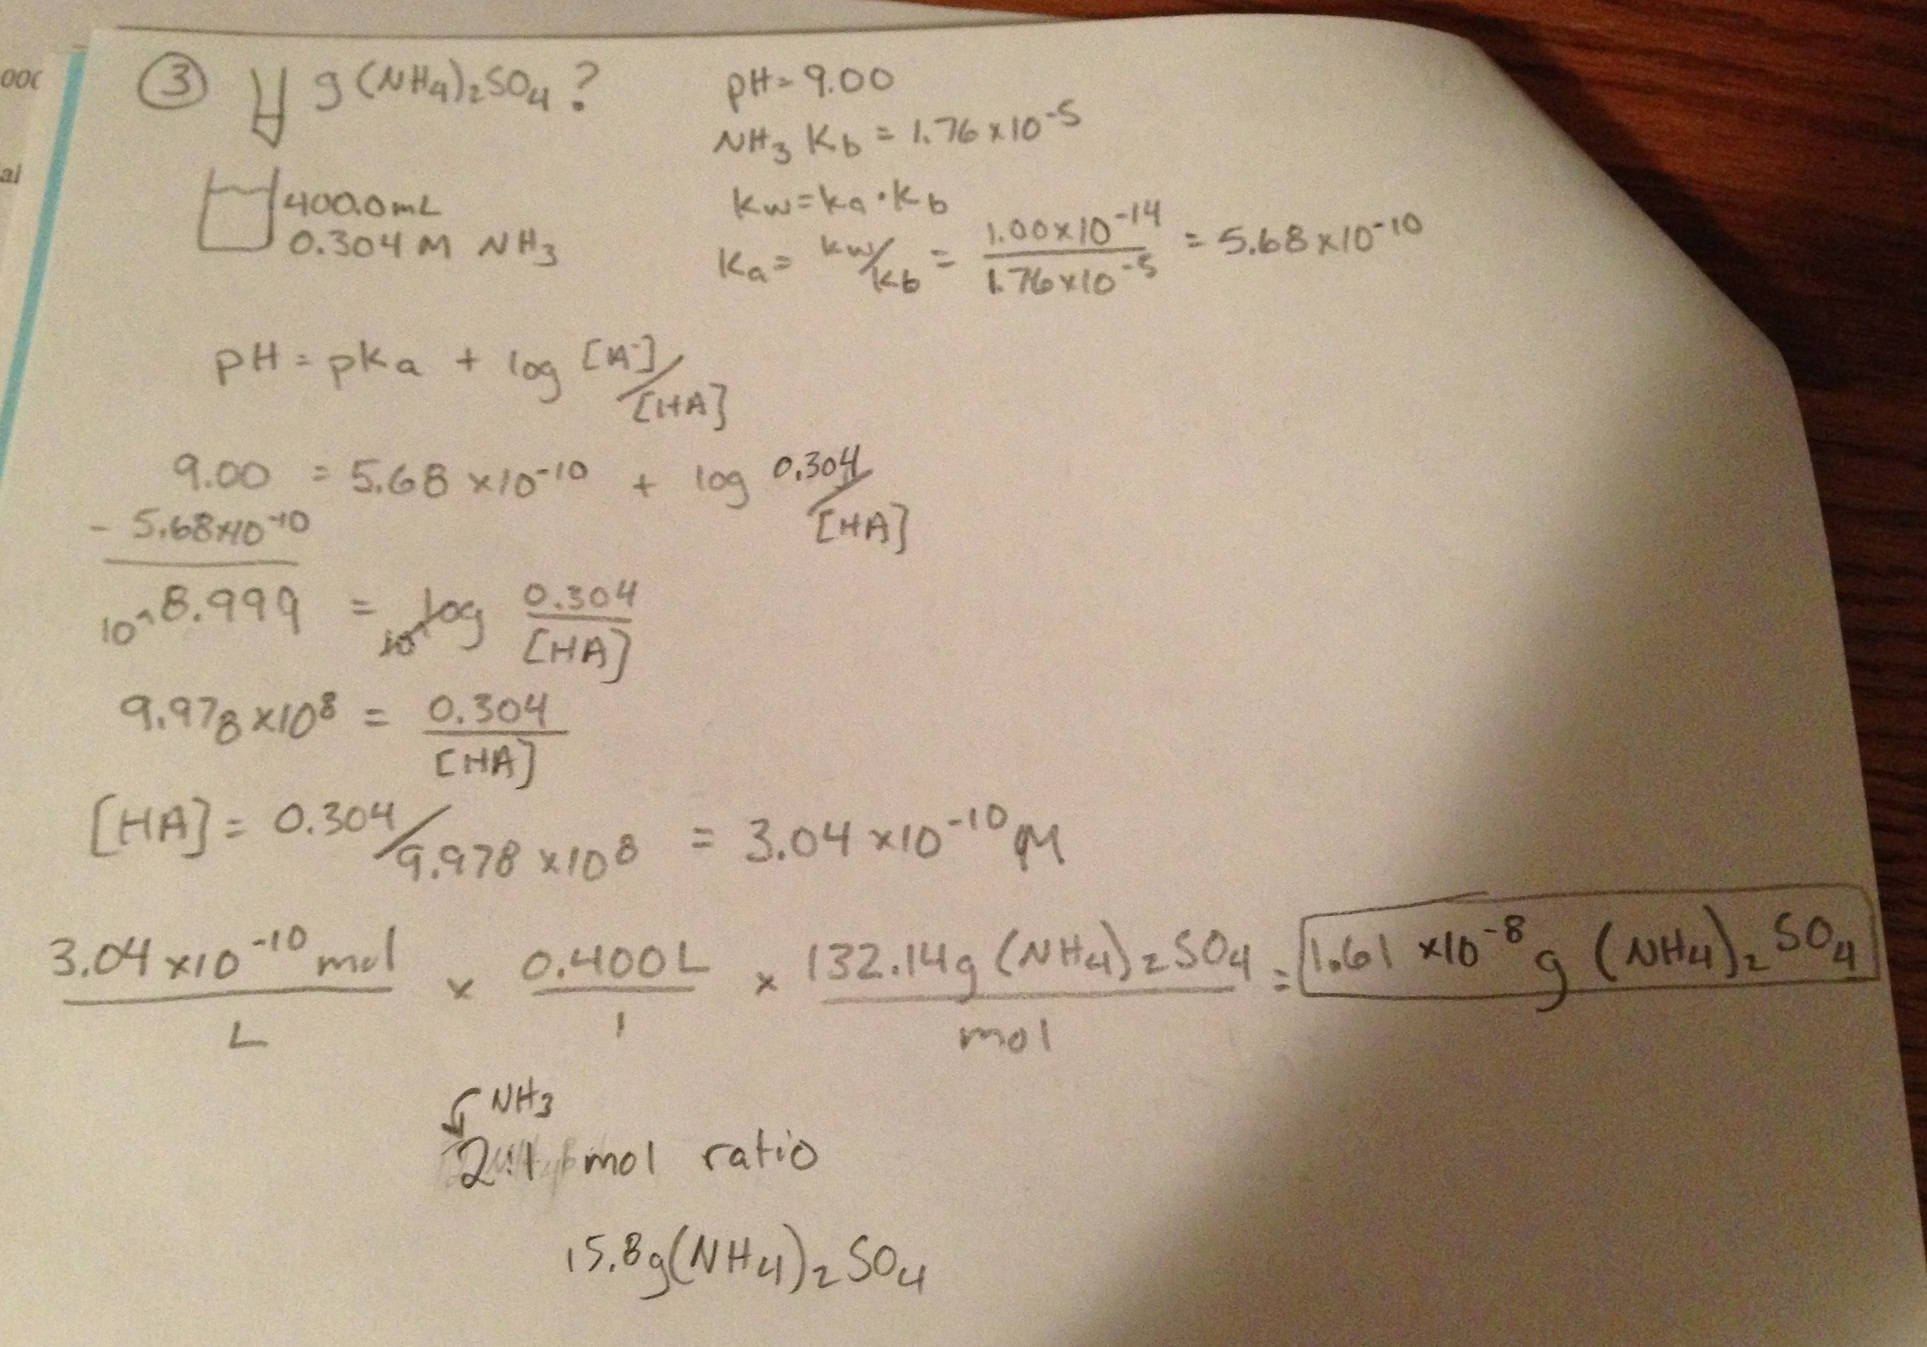 ooc
al
③ g (NH4)2SO4?
400.0mL
0.304 M NH3
pH = 9.00
NH3 Kb = 1.76 x 10^-5
Kw = Ka · Kb
Ka = Kw/Kb = 1.00x10^-14 / 1.76x10^-5 = 5.68 x 10^-10
pH = pKa + log [A-]/[HA]
9.00 = 5.68 x10^-10 + log 0.304/[HA]
- 5.68x10^-10
10^8.999 = 10^log 0.304/[HA]
9.978 x10^8 = 0.304/[HA]
[HA] = 0.304/9.978 x10^8 = 3.04 x10^-10 M
3.04 x10^-10 mol / L x 0.400L / 1 x 132.14g (NH4)2SO4 / mol = 1.61 x10^-8 g (NH4)2SO4
NH3
2:1 mol ratio
15.8g(NH4)2SO4